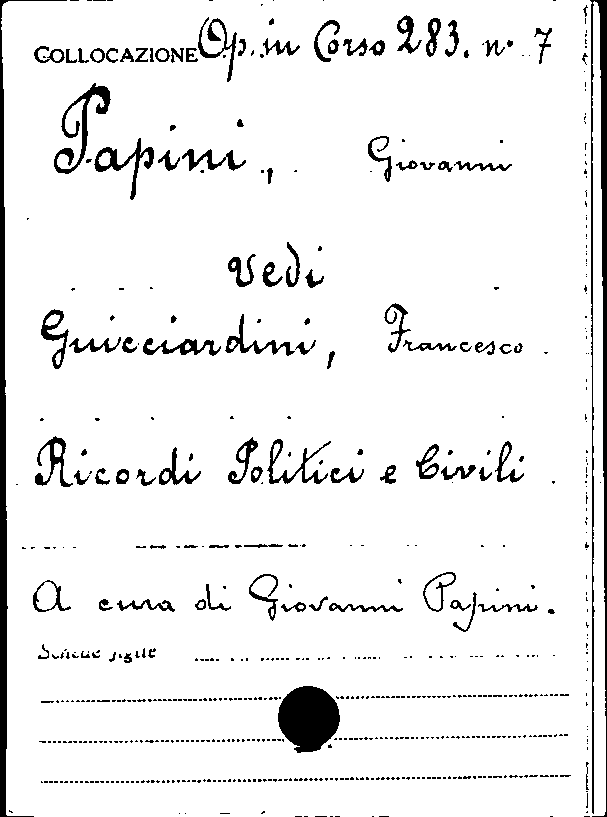 COLLOCAZIONE Op. in Corso 283. n. 7
Papini, Giovanni
Vedi
Guicciardini, Francesco.
Ricordi Politici e Civili.
A cura di Giovanni Papini.
Schede figlie